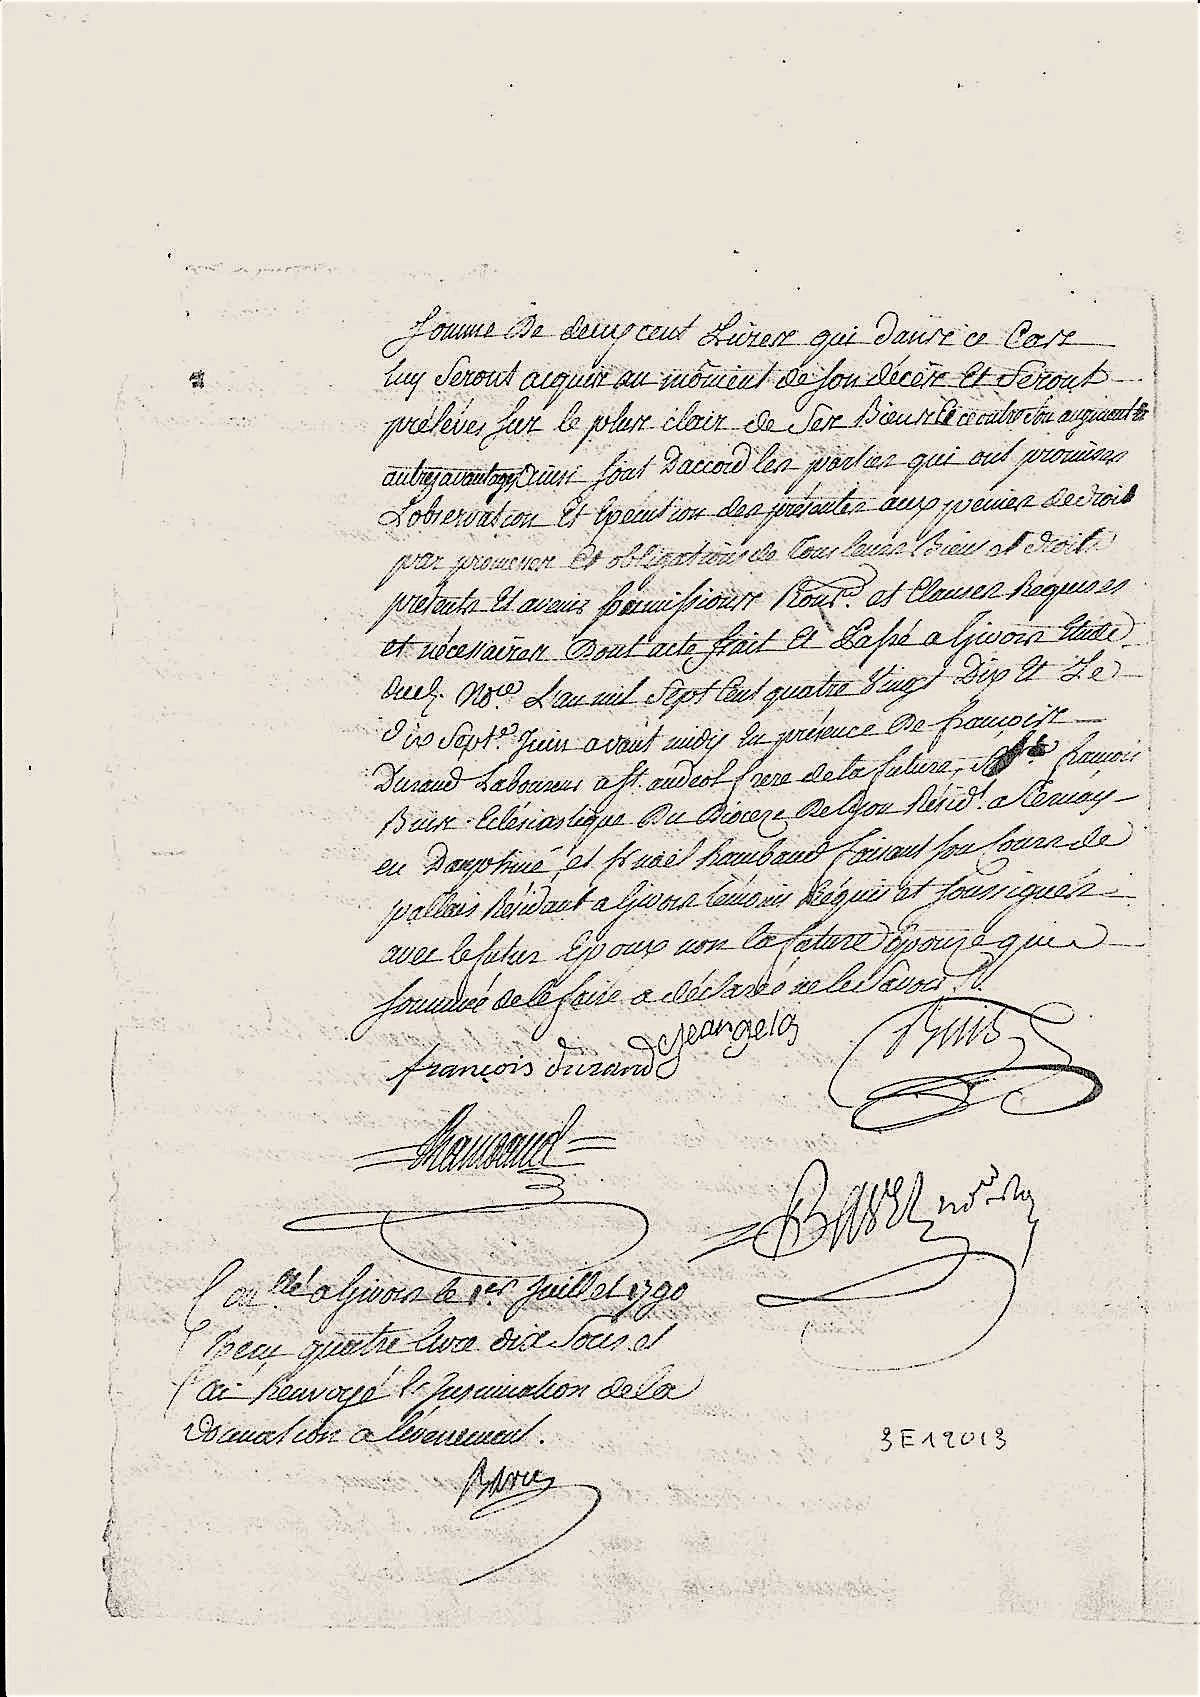 somme De deux cent Livres qui dans ce Cas
luy Seront acquis au moment de son décès Et Seront
prélevés sur le plus clair de Ses Biens Et ce outre son augment &
autres avantages ainsi sont Daccord les parties qui ont promises
Lobservation Et Execution des présentes aux peines de droit
par promesses Et obligations de tous leurs Biens et droits
présents Et avenir soumissions Renons. et Clauses Requises
et nécessaires Dont acte fait Et Passé a Givors Etude
dud. Nore. L'an mil Sept Cent quatre Vingt Dix Et Le
dix Septe. Juin avant midy En présence De françois
Durand Laboureur a St. andeol frere de la future, françois
Buis Eclésiastique Du Diocèze De Lyon Résidt. a Ternay
en Dauphiné, et Sr. noël Rambaud faisant son Cours de
pallais Résidant a Givors témoins Réquis et soussignés
avec le futur Epoux non la future Epouze qui a
sommée de le faire a déclaré ne le Savoir
françois durand Jean gela Buis
Rambaud
nore
Conllé a Givors le 1er Juillet 1790
Reçu quatre livre dix Sous et
ai Renvoyé l'Insinuation de la
Donation a lévenement.
3 E 19013